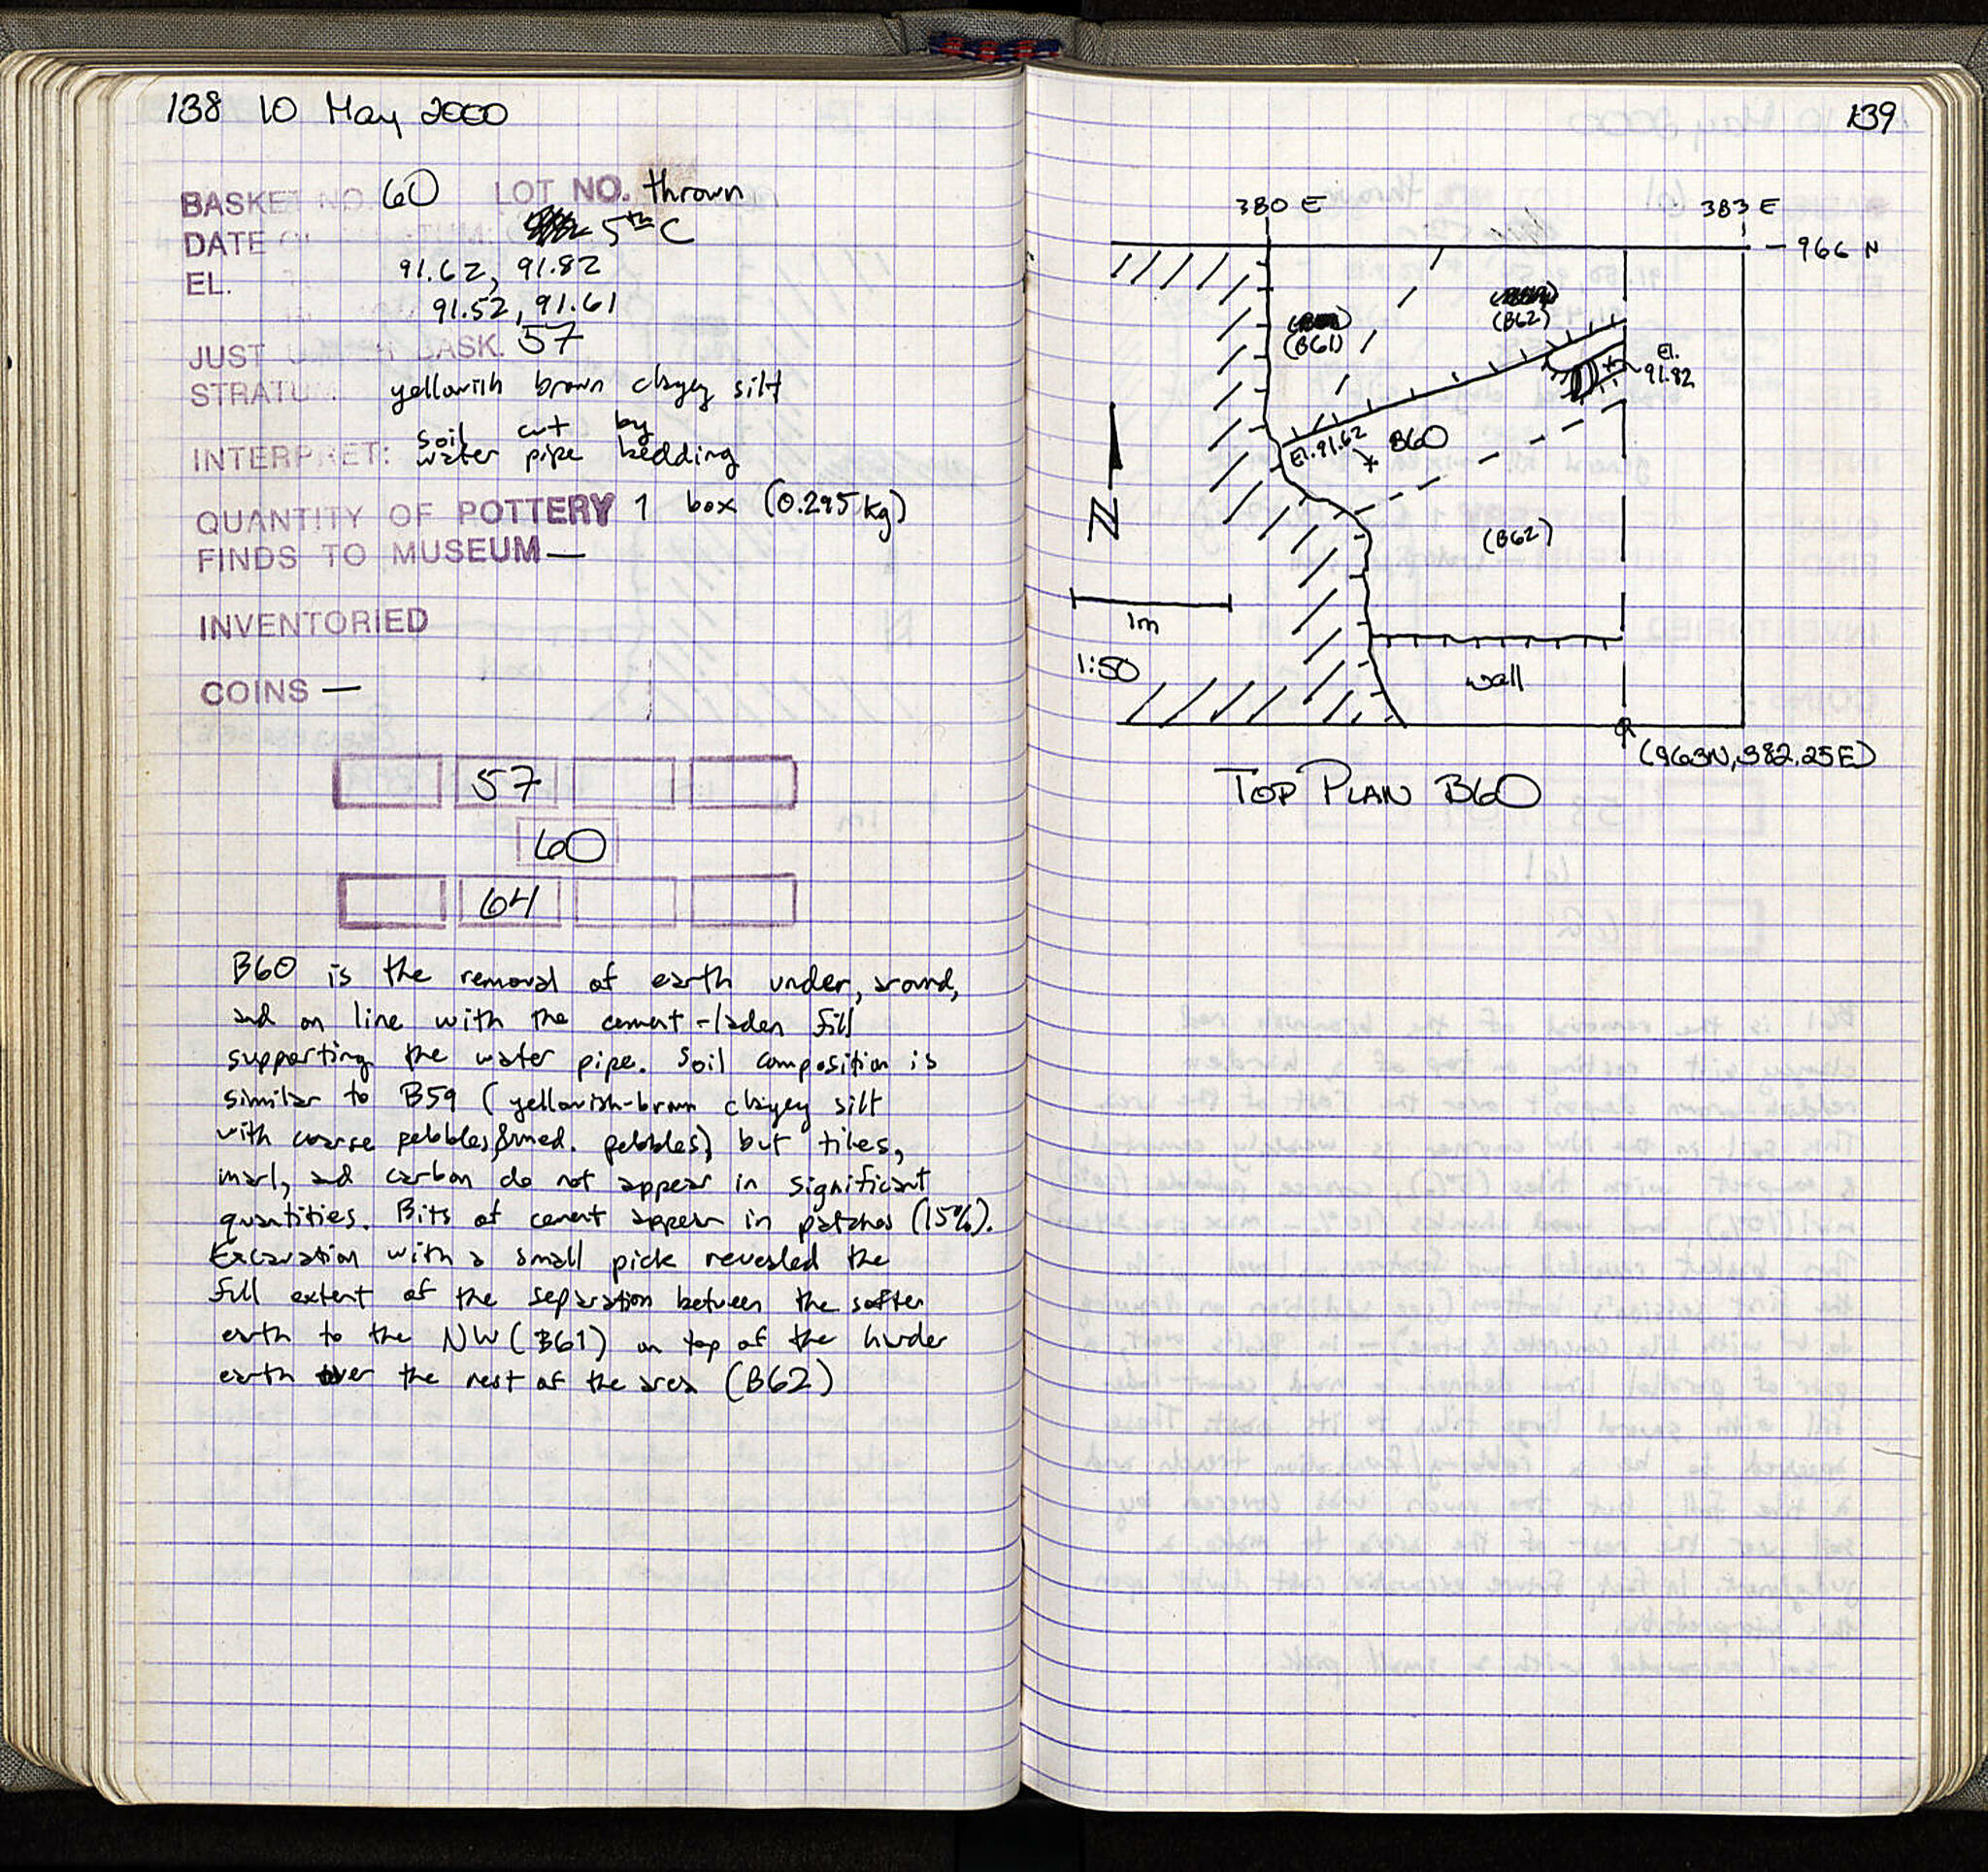 138 10 May 2000
BASKET NO. 60 LOT NO. thrown
DATE OF 5th C
EL. 91.62, 91.82
91.52, 91.61
JUST BASK. 57
STRATUM yellowish brown clayey silt
soil cut by
INTERPRET: water pipe bedding
QUANTITY OF POTTERY 1 box (0.295 kg)
FINDS TO MUSEUM —
INVENTORIED
COINS —
57
60
64
B60 is the removal of earth under, around,
and on line with the cement-laden fill
supporting the water pipe. Soil composition is
similar to B59 (yellowish-brown clayey silt
with coarse pebbles & med. pebbles) but tiles,
marl, and carbon do not appear in significant
quantities. Bits of cement appear in patches (15%).
Excavation with a small pick revealed the
full extent of the separation between the softer
earth to the NW (B61) on top of the harder
earth over the rest of the area (B62)
139
380 E 383 E
966 N
(B62)
(B61)
El.
91.82
El. 91.62 B60
N
(B62)
1m
1:50
wall
(963N, 382.25E)
TOP PLAN B60